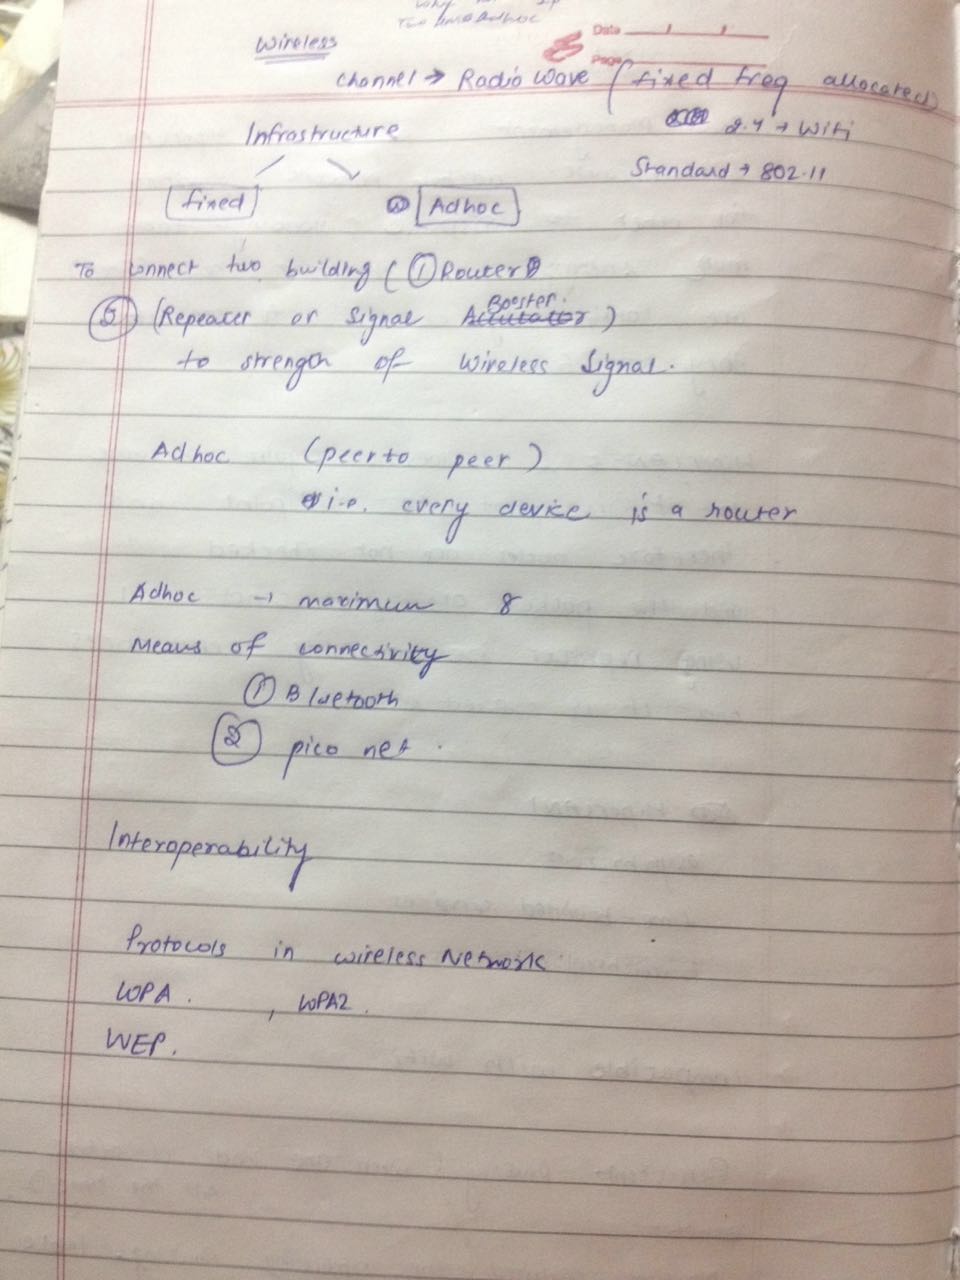 Two Adhoc
Date
Page
Wireless
Channel → Radio Wave (fixed freq allocated)
2.4 → Wifi
Infrastructure
Standard → 802.11
fixed
Adhoc
To connect two building ( ① Router
⑤ (Repeater or Signal Booster)
to strength of wireless Signal.
Adhoc (peer to peer)
i.e. every device is a router
Adhoc → maximum 8
Means of connectivity
① Bluetooth
② pico net.
Interoperability
Protocols in wireless Network
WPA. , WPA2.
WEP.